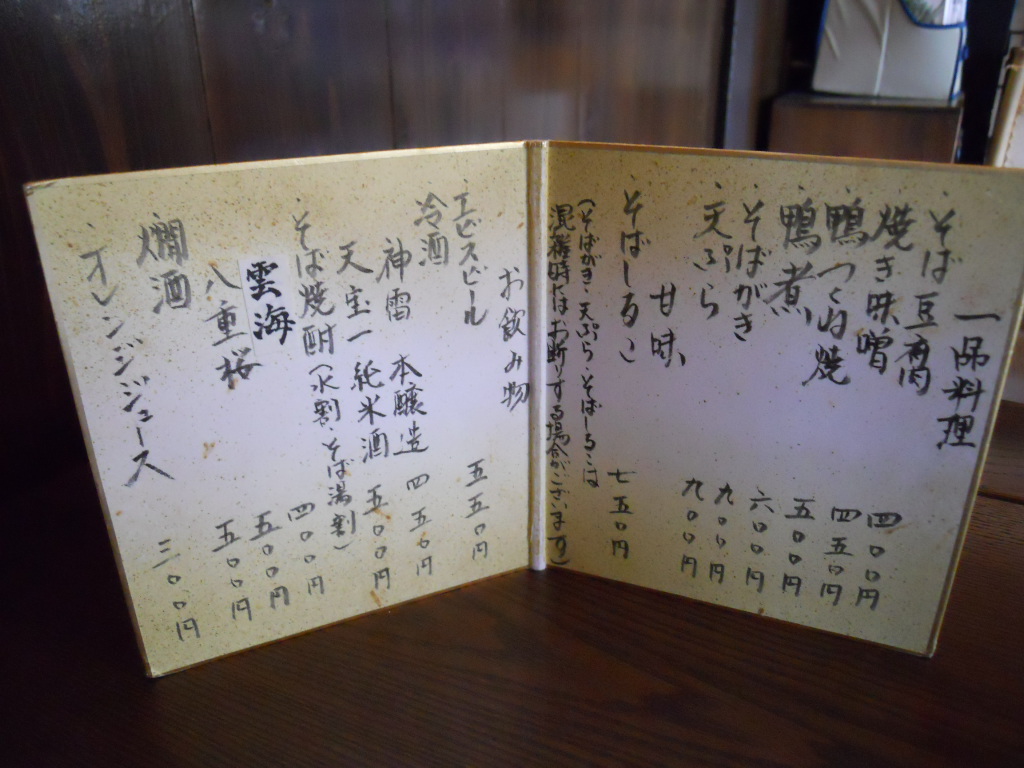 一品料理
・そば豆腐 四〇〇円
・焼き味噌 四五〇円
・鴨つくね焼 五〇〇円
・鴨煮 六〇〇円
・そばがき 九〇〇円
・天ぷら 九〇〇円
甘味
・そばしるこ 七五〇円
(そばがき・天ぷら・そばしるこは
混雑時はお断りする場合がございます)
お飲み物
・エビスビール 五五〇円
・冷酒
神雷 本醸造 四五〇円
天宝一 純米酒 五〇〇円
・そば焼酎(水割 そば湯割)
雲海 四〇〇円
八重桜 五〇〇円
・燗酒 五〇〇円
・オレンジジュース 三〇〇円